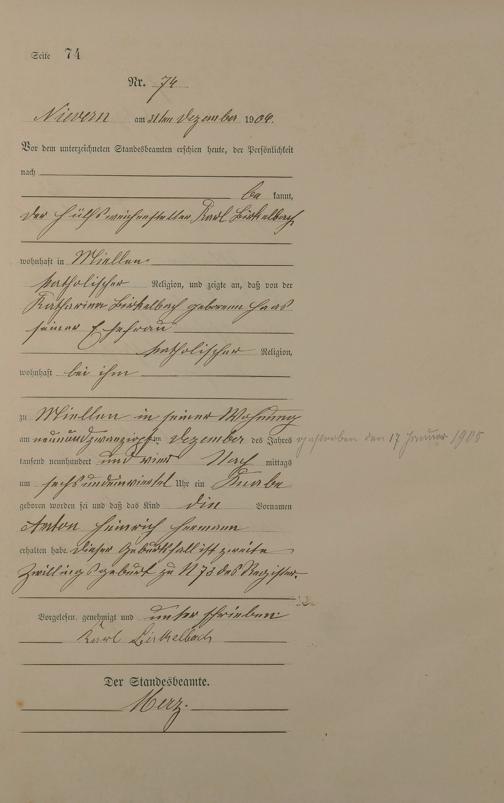 Seite 74
Nr. 74
Nievern am 31ten Dezember 1904.
Vor dem unterzeichneten Standesbeamten erschien heute, der Persönlichkeit
nach
be kannt,
der Hülfsweichensteller Karl Birkelbach
wohnhaft in Miellen
katholischer Religion, und zeigte an, daß von der
Katharina Birkelbach geborenen Haas
seiner Ehefrau
katholischer Religion,
wohnhaft bei ihm
zu Miellen in seiner Wohnung
am neunundzwanzigsten Dezember des Jahres
tausend neunhundert und vier Nach mittags
um sechs undeinviertel Uhr ein Knabe
geboren worden sei und daß das Kind die Vornamen
Anton Heinrich Hermann
erhalten habe. Dieser Geburtsfall ist zweite
Zwillingsgeburt zu N 73 des Register.
gestorben den 17 Januar 1905
Vorgelesen, genehmigt und unterschrieben
Karl Birkelbach
Der Standesbeamte.
Merz.